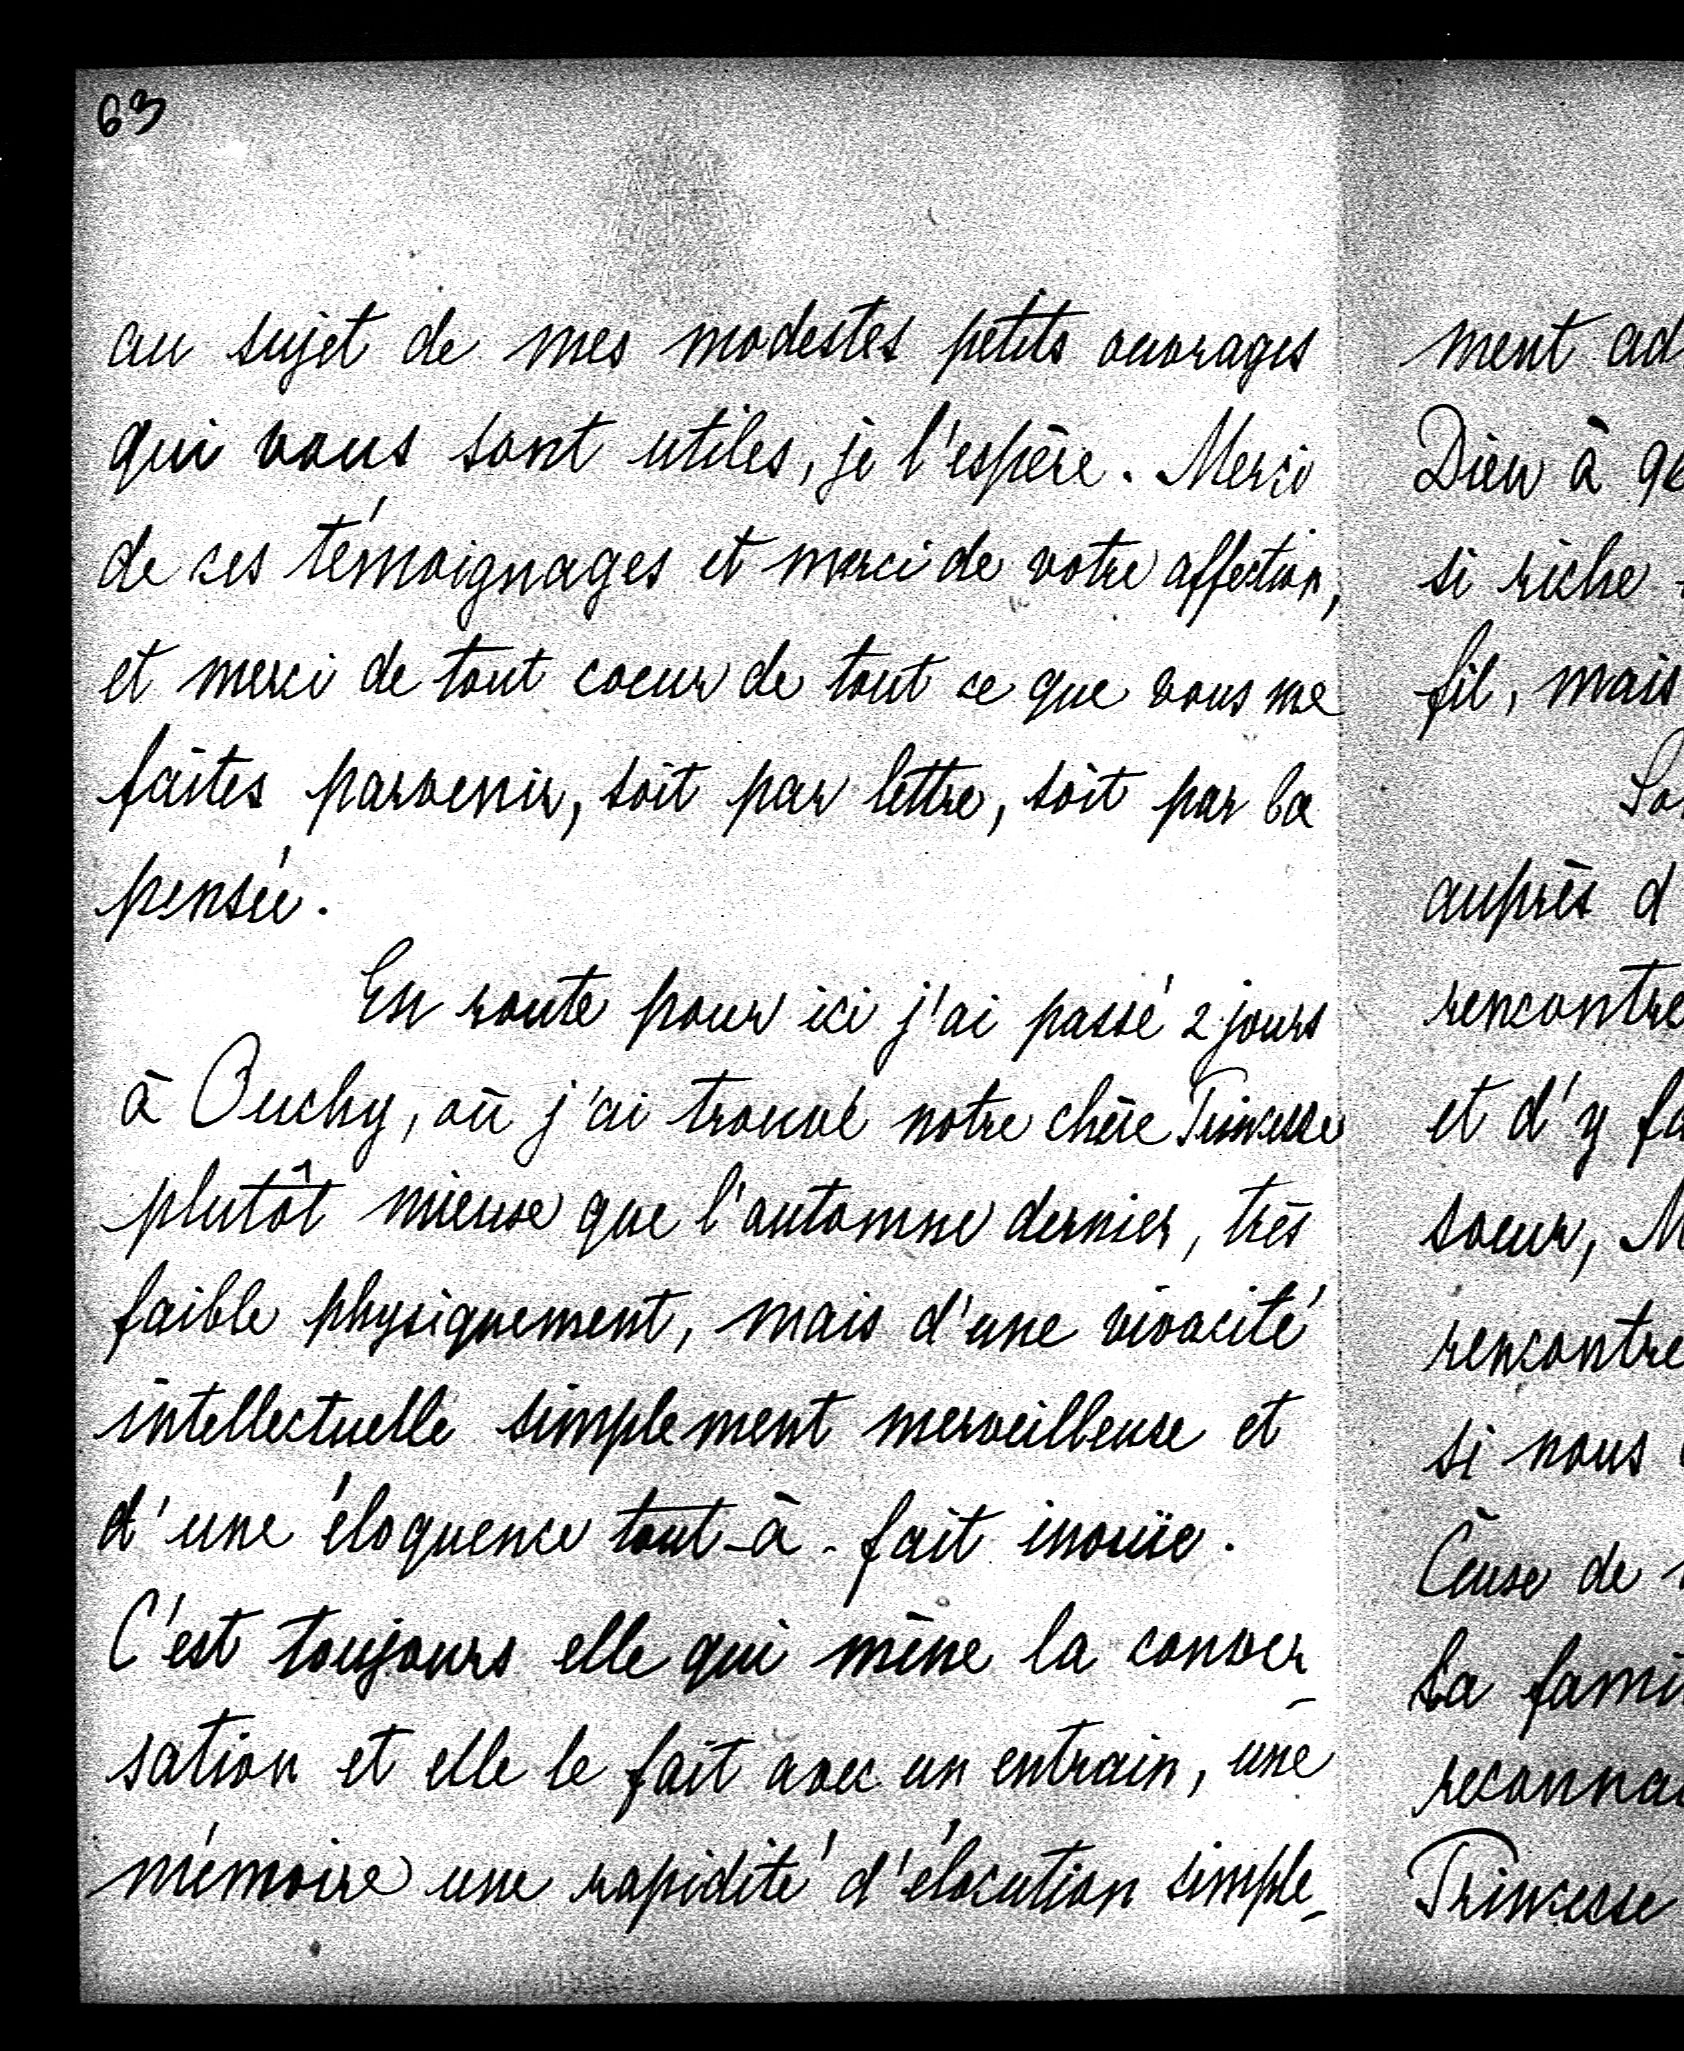 63
au sujet de mes modestes petits ouvrages
qui vous sont utiles, je l'espère. Merci
de ces témoignages et merci de votre affection,
et merci de tout coeur de tout ce que vous me
faites parvenir, soit par lettre, soit par la
pensée.
En route pour ici j'ai passé 2 jours
à Ouchy, où j'ai trouvé notre chère Princesse
plutôt mieux que l'automne dernier, très
faible physiquement, mais d'une vivacité
intellectuelle simplement merveilleuse et
d'une éloquence tout-à-fait inouïe.
C'est toujours elle qui mène la conver-
sation et elle le fait avec un entrain, une
mémoire une rapidité d'élocution simple-
ment ad
Dieu à 96
si riche
fil, mais
So
auprès d
rencontre
et d'y fa
soeur, M
rencontre
si nous
Ceux de
La fami
reconnai
Princesse